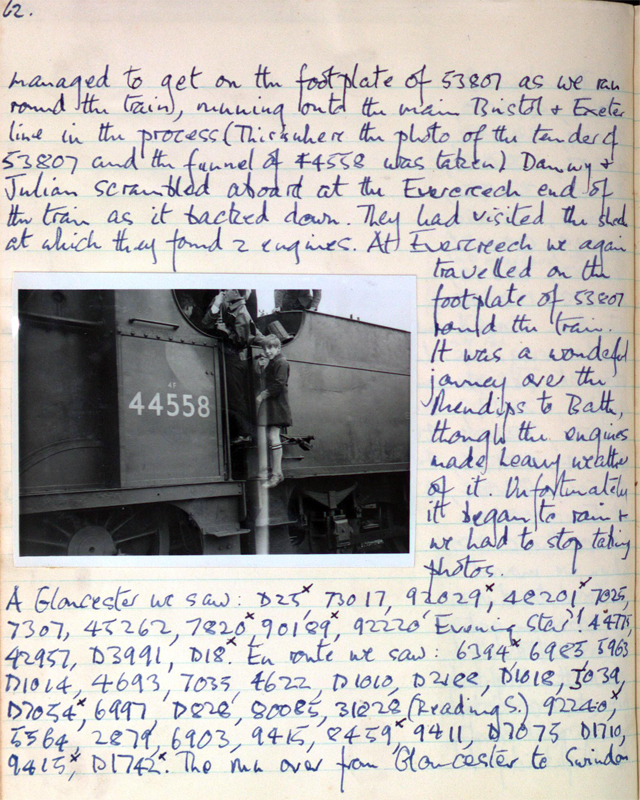 62.
managed to get on the footplate of 53807 as we ran
round the train, running onto the main Bristol & Exeter
line in the process (This is where the photo of the tender of
53807 and the funnel of 44558 was taken) Danny &
Julian scrambled aboard at the Evercreech end of
the train as it backed down. They had visited the shed
at which they found 2 engines. At Evercreech we again
travelled on the
footplate of 53807
round the train.
It was a wonderful
journey over the
Mendips to Bath,
though the engines
made heavy weather
of it. Unfortunately
it began to rain &
we had to stop taking
photos.
4F
44558
A Gloucester we saw: D25x, 73017, 92029x, 48201x, 7025,
7307, 45262, 7820x, 90189x, 92220 'Evening Star'!
42957, D3991, D18.x En route we saw: 6394x 6985 5963
D1014, 4693, 7035 4622, D1010, D2188, D1018, 5039,
D7054x, 6997, D828, 80085, 31828 (Reading S.) 92240,x
5564, 2879, 6903, 9415, 8459x, 9411, D7075 D1710,
9415x, D1742x. The run over from Gloucester to Swindon